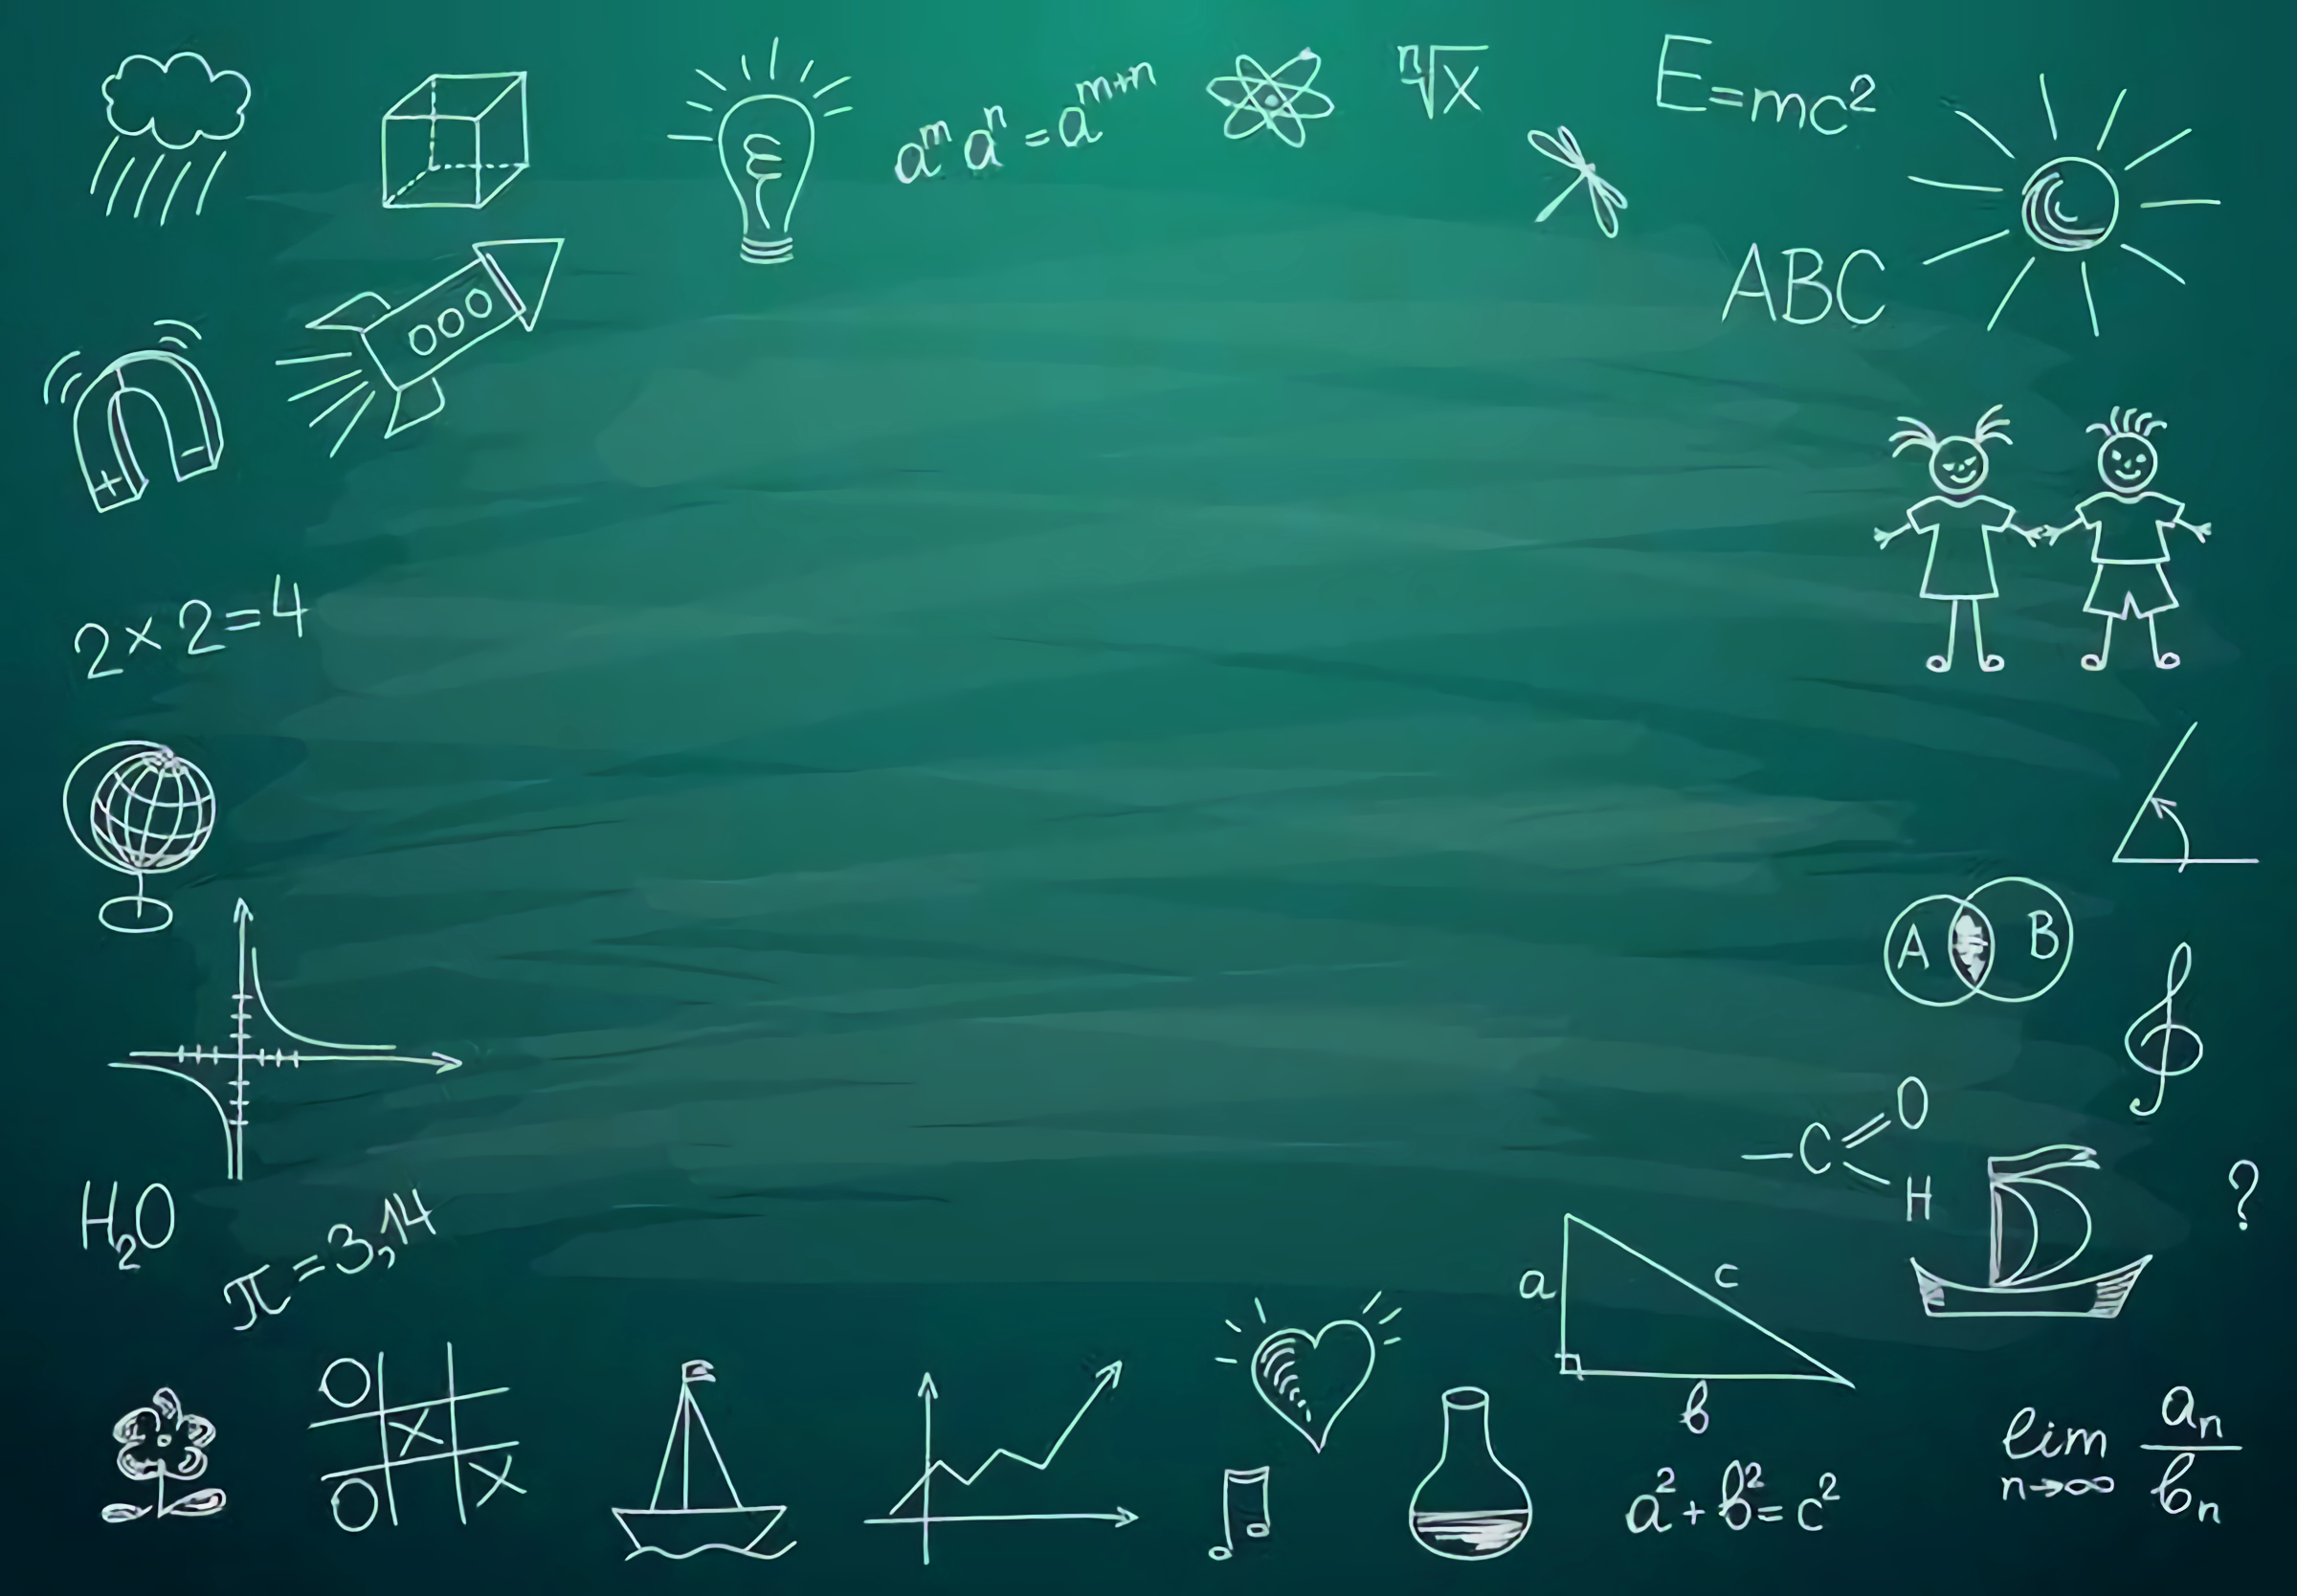 aᵐ aⁿ = aᵐ⁺ⁿ
ⁿ√x
E=mc²
ABC
+ −
2×2=4
A B
O
—C
H
H₂O
π=3,14
?
a c
b
O
X
O X
a²+b²=c²
lim aₙ/bₙ
n→∞